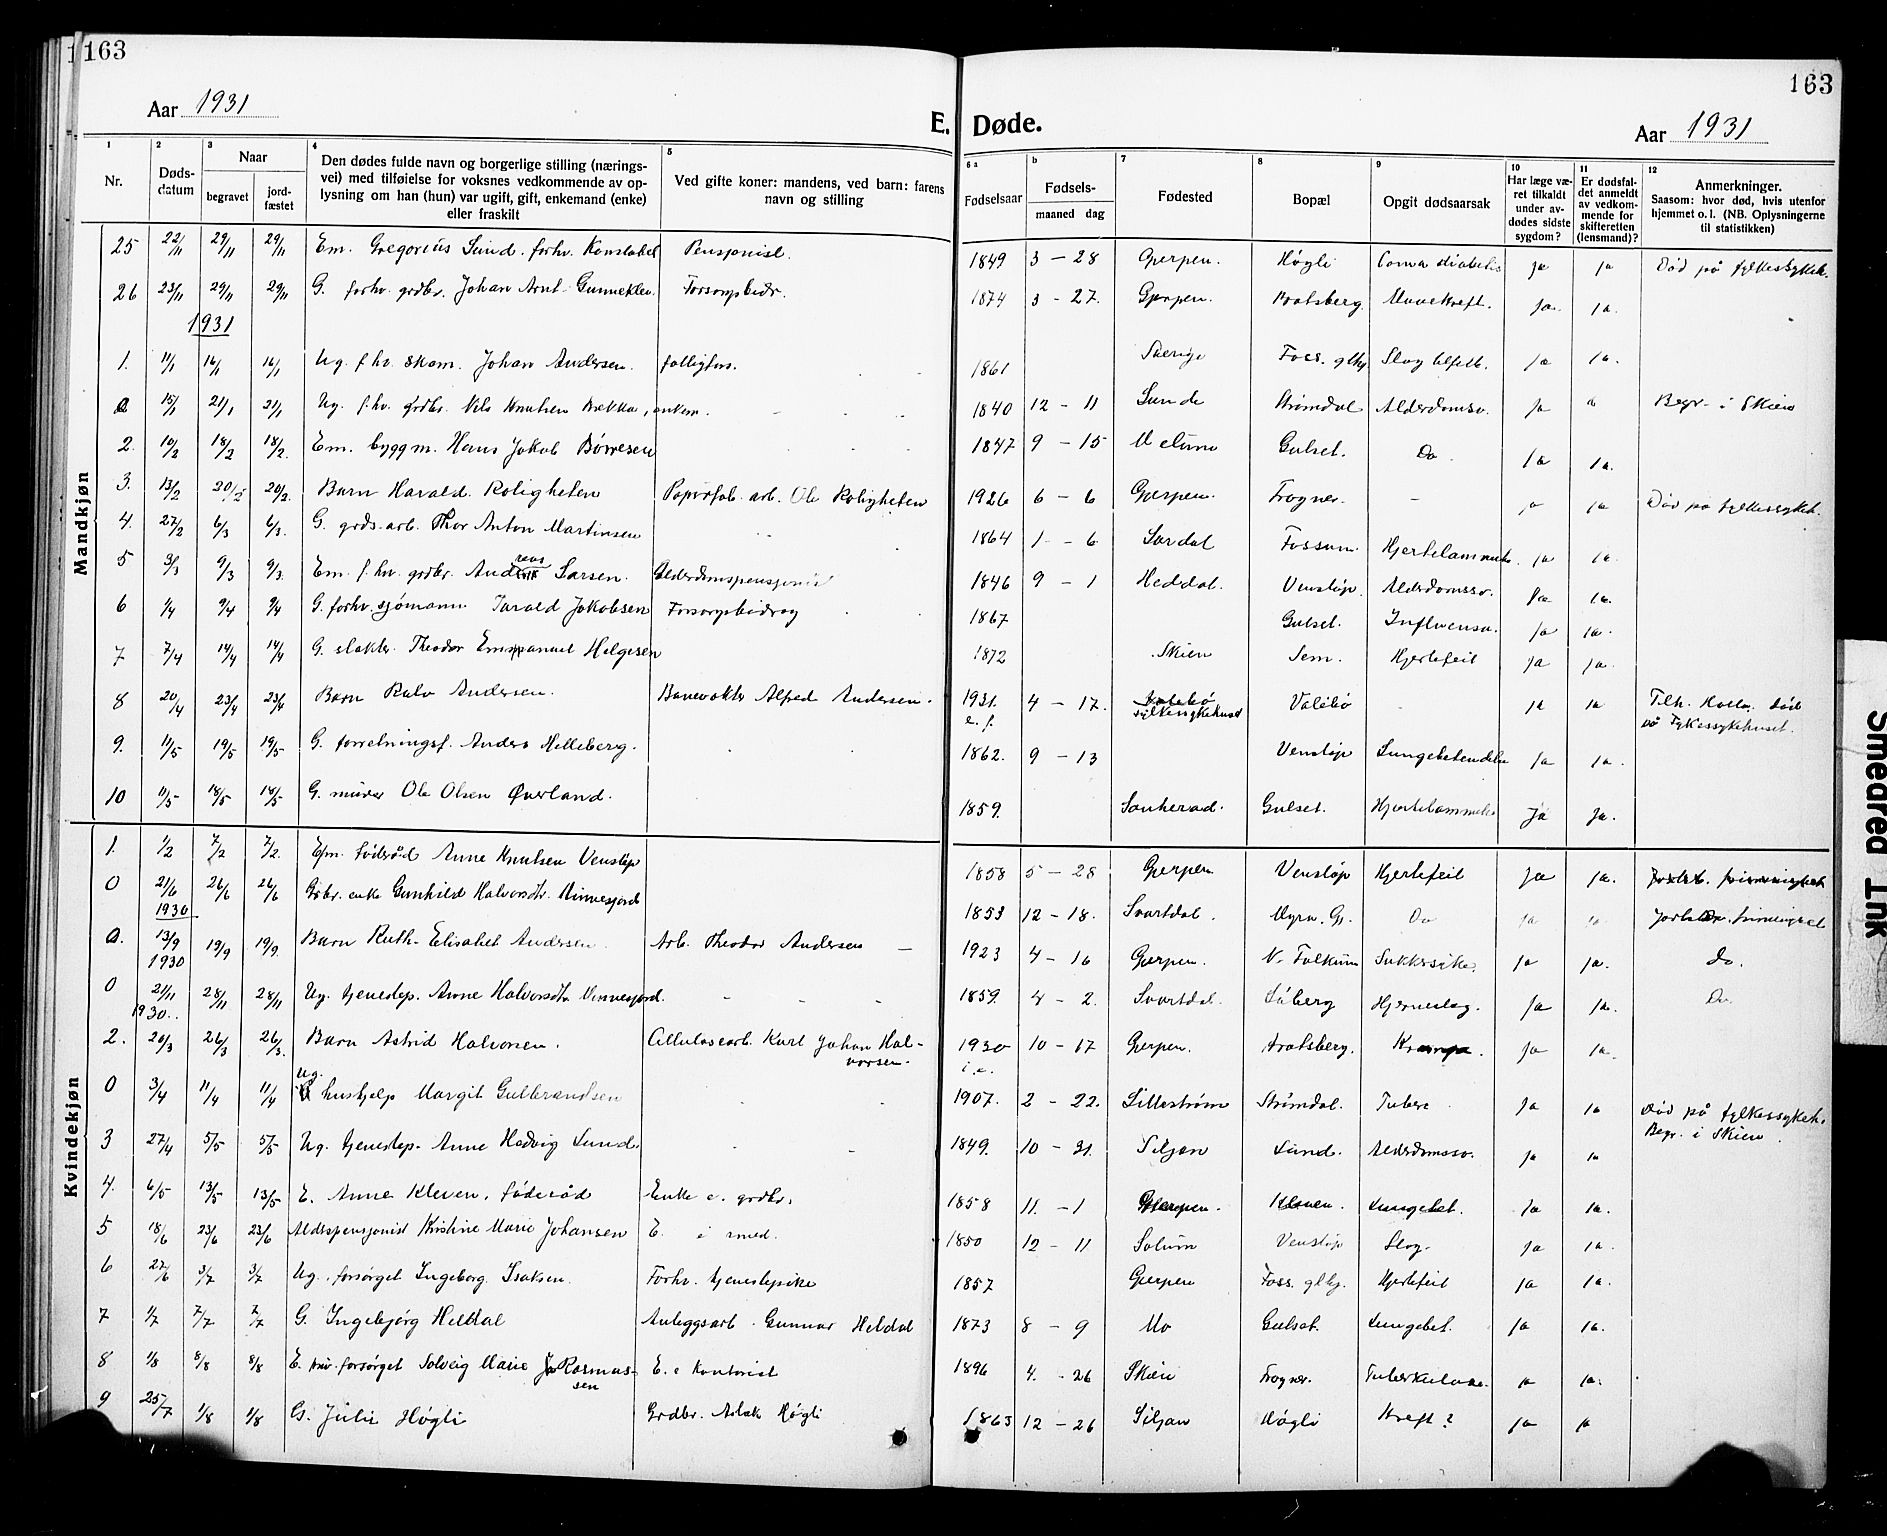 163
163
Aar 1931
E. Døde.
Aar 1931
1
2
3
4
5
6 a
b
7
8
9
10
11
12
Nr.
Døds-
datum
Naar
begravet
jord-
fæstet
Den dødes fulde navn og borgerlige stilling (nærings-
vei) med tilføielse for voksnes vedkommende av op-
lysning om han (hun) var ugift, gift, enkemand (enke)
eller fraskilt
Ved gifte koner: mandens, ved barn: farens
navn og stilling
Fødselsaar
Fødsels-
maaned dag
Fødested
Bopæl
Opgit dødsaarsak
Har læge væ-
ret tilkaldt
under av-
dødes sidste
sygdom?
Er dødsfal-
det anmeldt
av vedkom-
mende for
skifteretten
(lensmand)?
Anmerkninger.
Saasom: hvor død, hvis utenfor
hjemmet o. l. (NB. Oplysningerne
til statistikken)
Mandkjøn
25 22/11 29/11 29/11 Em. Gregorius Lund. forhv. Konstabel Pensjonist. 1849 3 - 28 Gjerpen. Høgli Coma diabetis ja ja Død på fylkessykeh.
26 23/11 29/11 29/11 G. forhv. grdbr. Johan Arnt Gunneklev. Forsorgsbidr. 1874 3 - 27. Gjerpen. Bratsberg. Mavekreft. ja ja.
1931
1. 11/1 16/1 16/1 Ug. f. hv. skom. Johan Andersen. fattigfors. 1861 Sverige Foss. glhj. Slag tilfelle. ja ja.
a 15/1 21/1 21/1 Ug. f. hv. grdbr. Nils Knutsen Brekka, enkem. 1840 12 - 11 Lunde Strømdal Alderdomssv. ja Begr. i Skien
2. 10/2 18/2 18/2. Em. byggm. Hans Jakob Børresen 1847 9 - 15 Melum Gulset. Do ja ja.
3. 13/2 20/2 20/2. Barn Harald Roligheten Papirfab. arb. Ole Roligheten 1926 6 - 6 Gjerpen. Frogner. - ja ja Død på fylkessykeh.
4. 27/2 6/3 6/3. G. grds. arb. Thor Anton Martinsen 1864 1 - 6 Fossum. Hjertelammelse. ja ja.
5 3/3 9/3 9/3. Em. f. hv. grdbr. Larsen. Alderdomspensjonist 1846 9 - 1 Heddal. Venstøp. Alderdomssv. ja ja.
6 1/4 9/4 9/4 G. forhv. sjømann Tarald Jakobsen Forsorgsbidrag 1867 Gulset. Influensa. ja ja.
7 7/4 14/4 14/4 G. slakter. Theodor Emmanuel Helgesen 1872 Skien Sem. Hjertefeil ja ja.
8 20/4 23/4 23/4 Barn Andersen. Banevokter Alfred Andersen. 1931. 4 - 17. fylkessykehuset Valebø - ja ja Tilh. Holla. død
e. f. på Fylkessykehuset.
9. 11/5 19/5 19/5 G. forretningsf. Anders Helleberg. 1862. 9 - 13 Venstøp Lungebetendelse ja ja.
10 11/5 18/5 18/5 G. murer Ole Olsen Øverland. 1859. Sauherad. Gulset. Hjertelammelse Ja Ja.
Kvindekjøn
1. 1/2 7/2 7/2. Em. føderåd Anne Knutsen Venstøp 1858 5 - 28 Gjerpen Venstøp Hjertefeil ja ja.
0 21/6 26/6 26/6 Grbr. enke Gunhild Halvorsdtr. Vinnesjord 1853 12 - 18. Svartdal. Myra. Gj. Do ja ja
1930
a. 13/9 19/9 19/9. Barn Ruth Elisabet Andersen. Arb. Theodor Andersen - 1923 4 - 16 Gjerpen. N. Falkum Sukkersyke. ja ja. do.
1930
0 21/11 28/11 28/11 Ug. tjenestep. Anne Halvorsdtr Vinnesjord. 1859. 4 - 2. Svartdal. Hjerneslag. ja ja. Do.
1930..
2. 20/3 26/3 26/3. Barn Astrid Halvorsen. Cellulosearb. Kurt Johan Hal-
vorsen. 1930 10 - 17 Gjerpen. Bratsberg. Krampe. ja ja.
0 3/4 11/4 11/4 Ug. hushjelp Margit Gulbrandsen 1907. 2 - 22. Lillestrøm Strømdal. Tuberc. ja ja Død på fylkessykeh.
Begr. i Skien
3 27/4 5/5 5/5. Ug. tjenestep. Anne Hedvig Lund. 1849. 10 - 31. Siljan Lund. Alderdomssv. ja ja
4. 6/5 13/5 13/5 E. Anne Kleven, føderåd Enke e. grdbr. 1858 11. - 1 Gjerpen. Kleven. Lungebet. ja ja.
5 18/6 23/6 23/6 Alderspensjonist Kristine Marie Johansen E. e smed. 1850 12 - 11 Solum Venstøp Slag. ja ja.
6 27/6 3/7 3/7 Ug. forsørget Ingeborg Isaksen. Forhv. tjenestepike 1857 Gjerpen Foss. glhj. Hjertefeil ja ja.
7 1/7 7/7 7/7 G. Ingebjørg Heldal Anleggsarb. Gunnar Heldal 1873 8 - 9 Mo Gulset. Lungebet. ja ja.
8 1/8 8/8 8/8 E. priv. forsørget Solveig Marie Rasmus-
sen E. e Kontorist 1896 4. - 26 Skien Frogner. Tuberkulose. ja ja.
9 25/7 1/8 1/8 G. Julie Høgli Grdbr. Aslak Høgli 1863 12 - 26 Siljan Høgli Kreft? ja ja
Smeared Ink